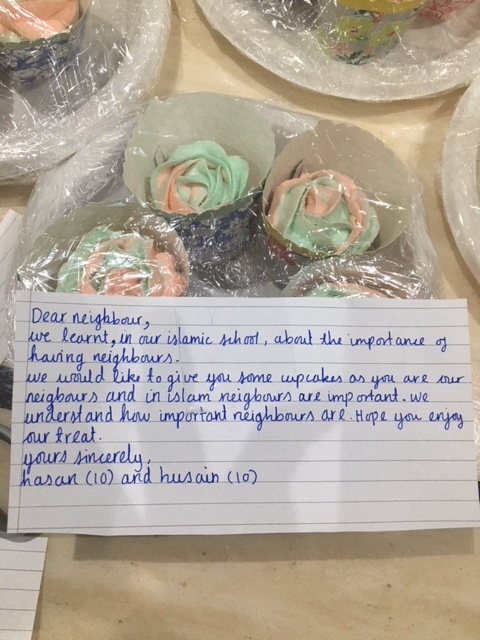 Dear neighbour,
we learnt, in our islamic school, about the importance of
having neighbours.
we would like to give you some cupcakes as you are our
neigbours and in islam neigbours are important. we
understand how important neighbours are. Hope you enjoy
our treat.
yours sincerely,
hasan (10) and husain (10)